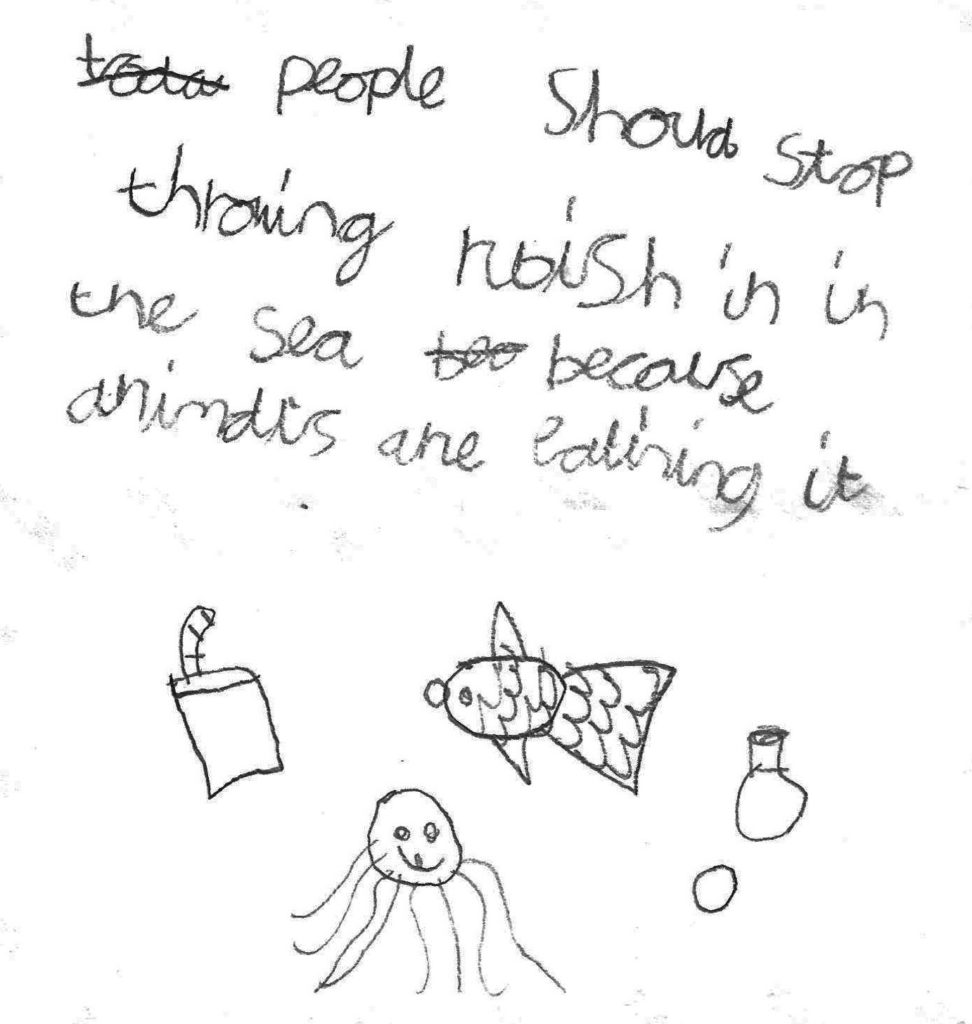 people should stop
throwing rubish in in
the sea because
animals are eatining it